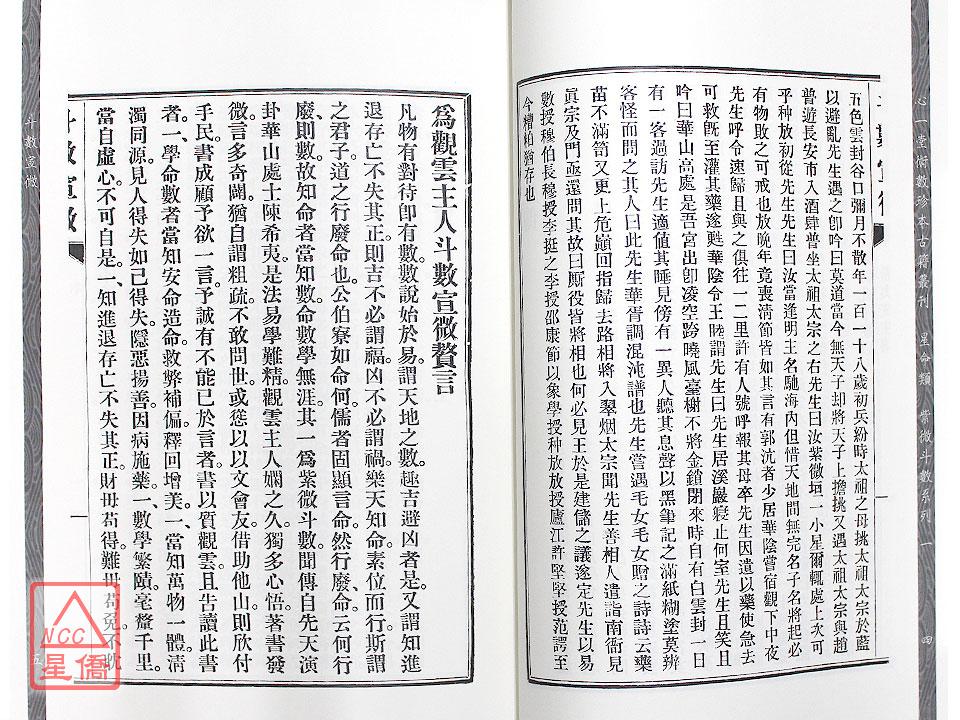 心一堂術數珍本古籍叢刊 星命類 紫微斗數系列 一 四
五色雲封谷口彌月不散年一百一十八歲初兵紛時太祖之母挑太祖太宗於藍
以避亂先生遇之卽吟曰莫道當今無天子却將天子上擔挑又遇太祖太宗與趙
普遊長安市入酒肆普坐太祖太宗之右先生曰汝紫微垣一小星爾輒處上次可
乎种放初從先生先生曰汝當逢明主名馳海內但惜天地間無完名子名將起必
有物敗之可戒也放晚年竟喪清節皆如其言有郭沆者少居華陰嘗宿觀下中夜
先生呼令速歸且與之俱往一二里許有人號呼報其母卒先生因遺以藥使急去
可救旣至灌其藥遂甦華陰令王睦謂先生曰先生居溪巖寢止何室先生且笑且
吟曰華山高處是吾宮出卽凌空跨曉風臺榭不將金鎖閉來時自有白雲封一日
有一客過訪先生適值其睡見傍有一異人聽其息聲以黑筆記之滿紙糊塗莫辨
客怪而問之其人曰此先生華胥調混沌譜也先生嘗遇毛女毛女贈之詩詩云藥
苗不滿笥又更上危巔回指歸去路相將入翠烟太宗聞先生善相人遣詣南衙見
眞宗及門亟還問其故曰厮役皆將相也何必見王於是建儲之議遂定先生以易
數授穆伯長穆授李挺之李授邵康節以象學授种放放授廬江許堅堅授范諤至
今糟粕猶存也
爲觀雲主人斗數宣微贅言
凡物有對待卽有數。數說始於易。謂天地之數。趣吉避凶者是。又謂知進
退存亡不失其正。則吉不必謂福。凶不必謂禍。樂天知命。素位而行。斯謂
之君子。道之行廢命也。公伯寮如命何。儒者固顯言命。然行廢、命、云何行
廢、則數。故知命者當知數。命數學無涯。其一爲紫微斗數。聞傳自先天演
卦華山處士陳希夷。是法易學難精。觀雲主人嫻之久。獨多心悟。著書發
微。言多奇闢。猶自謂粗疏。不敢問世。或慫以以文會友。借助他山。則欣付
手民。書成顧予欲一言。予誠有不能已於言者。書以質觀雲。且告讀此書
者。一、學命數者當知安命造命。救弊補偏。釋回增美。一、當知萬物一體。清
濁同源。見人得失如己得失。隱惡揚善。因病施藥。一、數學繁賾。毫釐千里。
當自虛心。不可自是。一、知進退存亡不失其正。財毋苟得。難毋苟免。不眈
一
斗數宣微
五
NCC
星僑